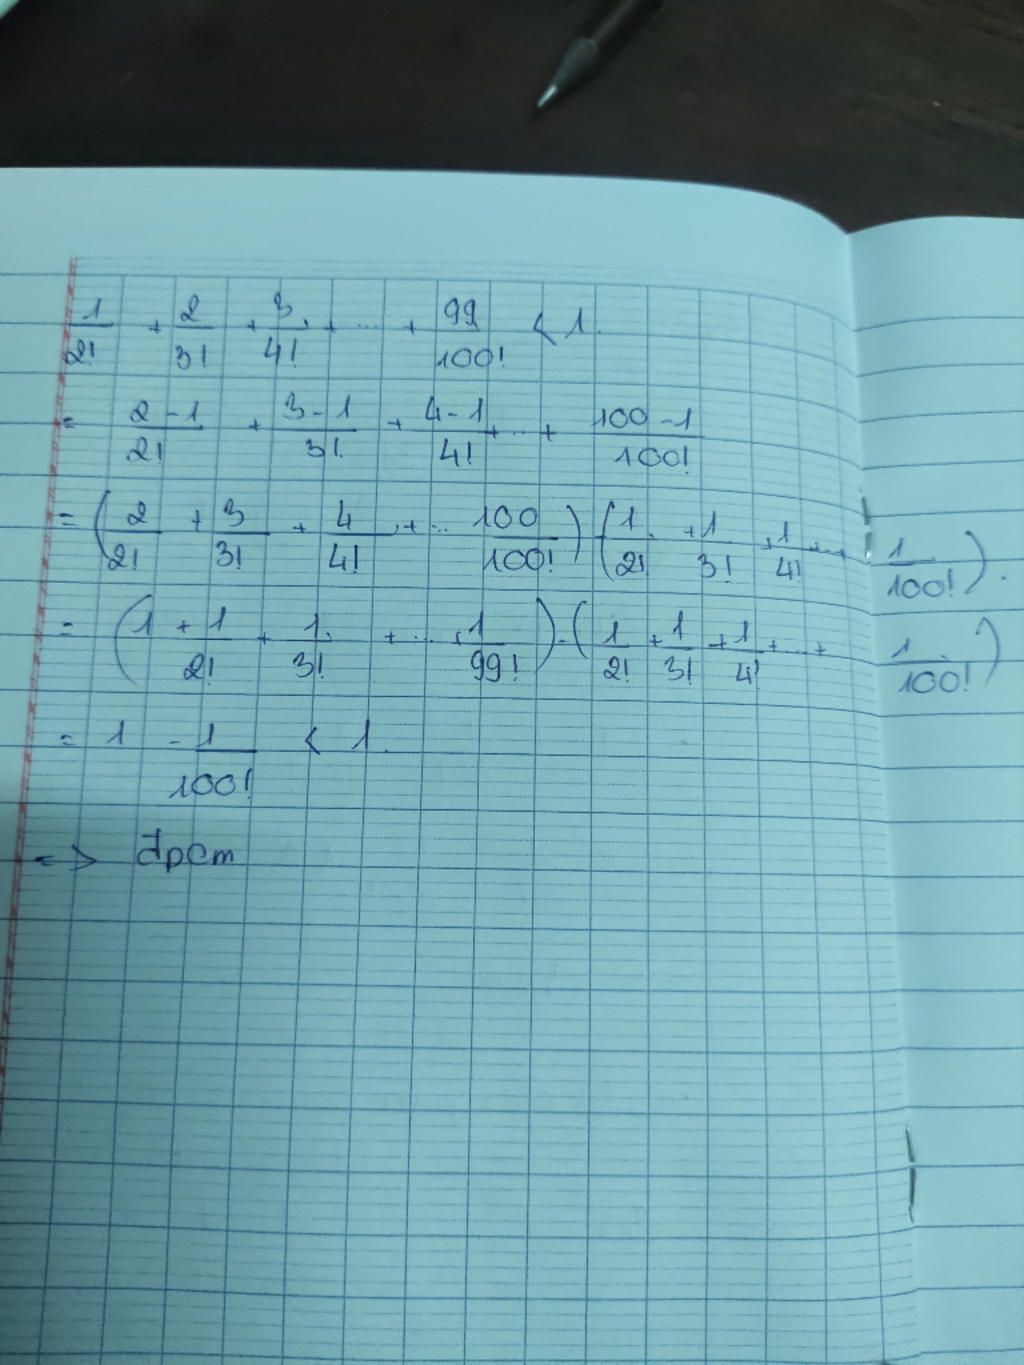 1/2! + 2/3! + 3/4! + ... + 99/100! < 1.
= 2-1/2! + 3-1/3! + 4-1/4! + ... + 100-1/100!
= (2/2! + 3/3! + 4/4! + ... 100/100!) (1/2! + 1/3! + 1/4! + ... + 1/100!).
= (1 + 1/2! + 1/3! + ... + 1/99!) - (1/2! + 1/3! + 1/4! + ... + 1/100!)
= 1 - 1/100! < 1.
=> đpcm